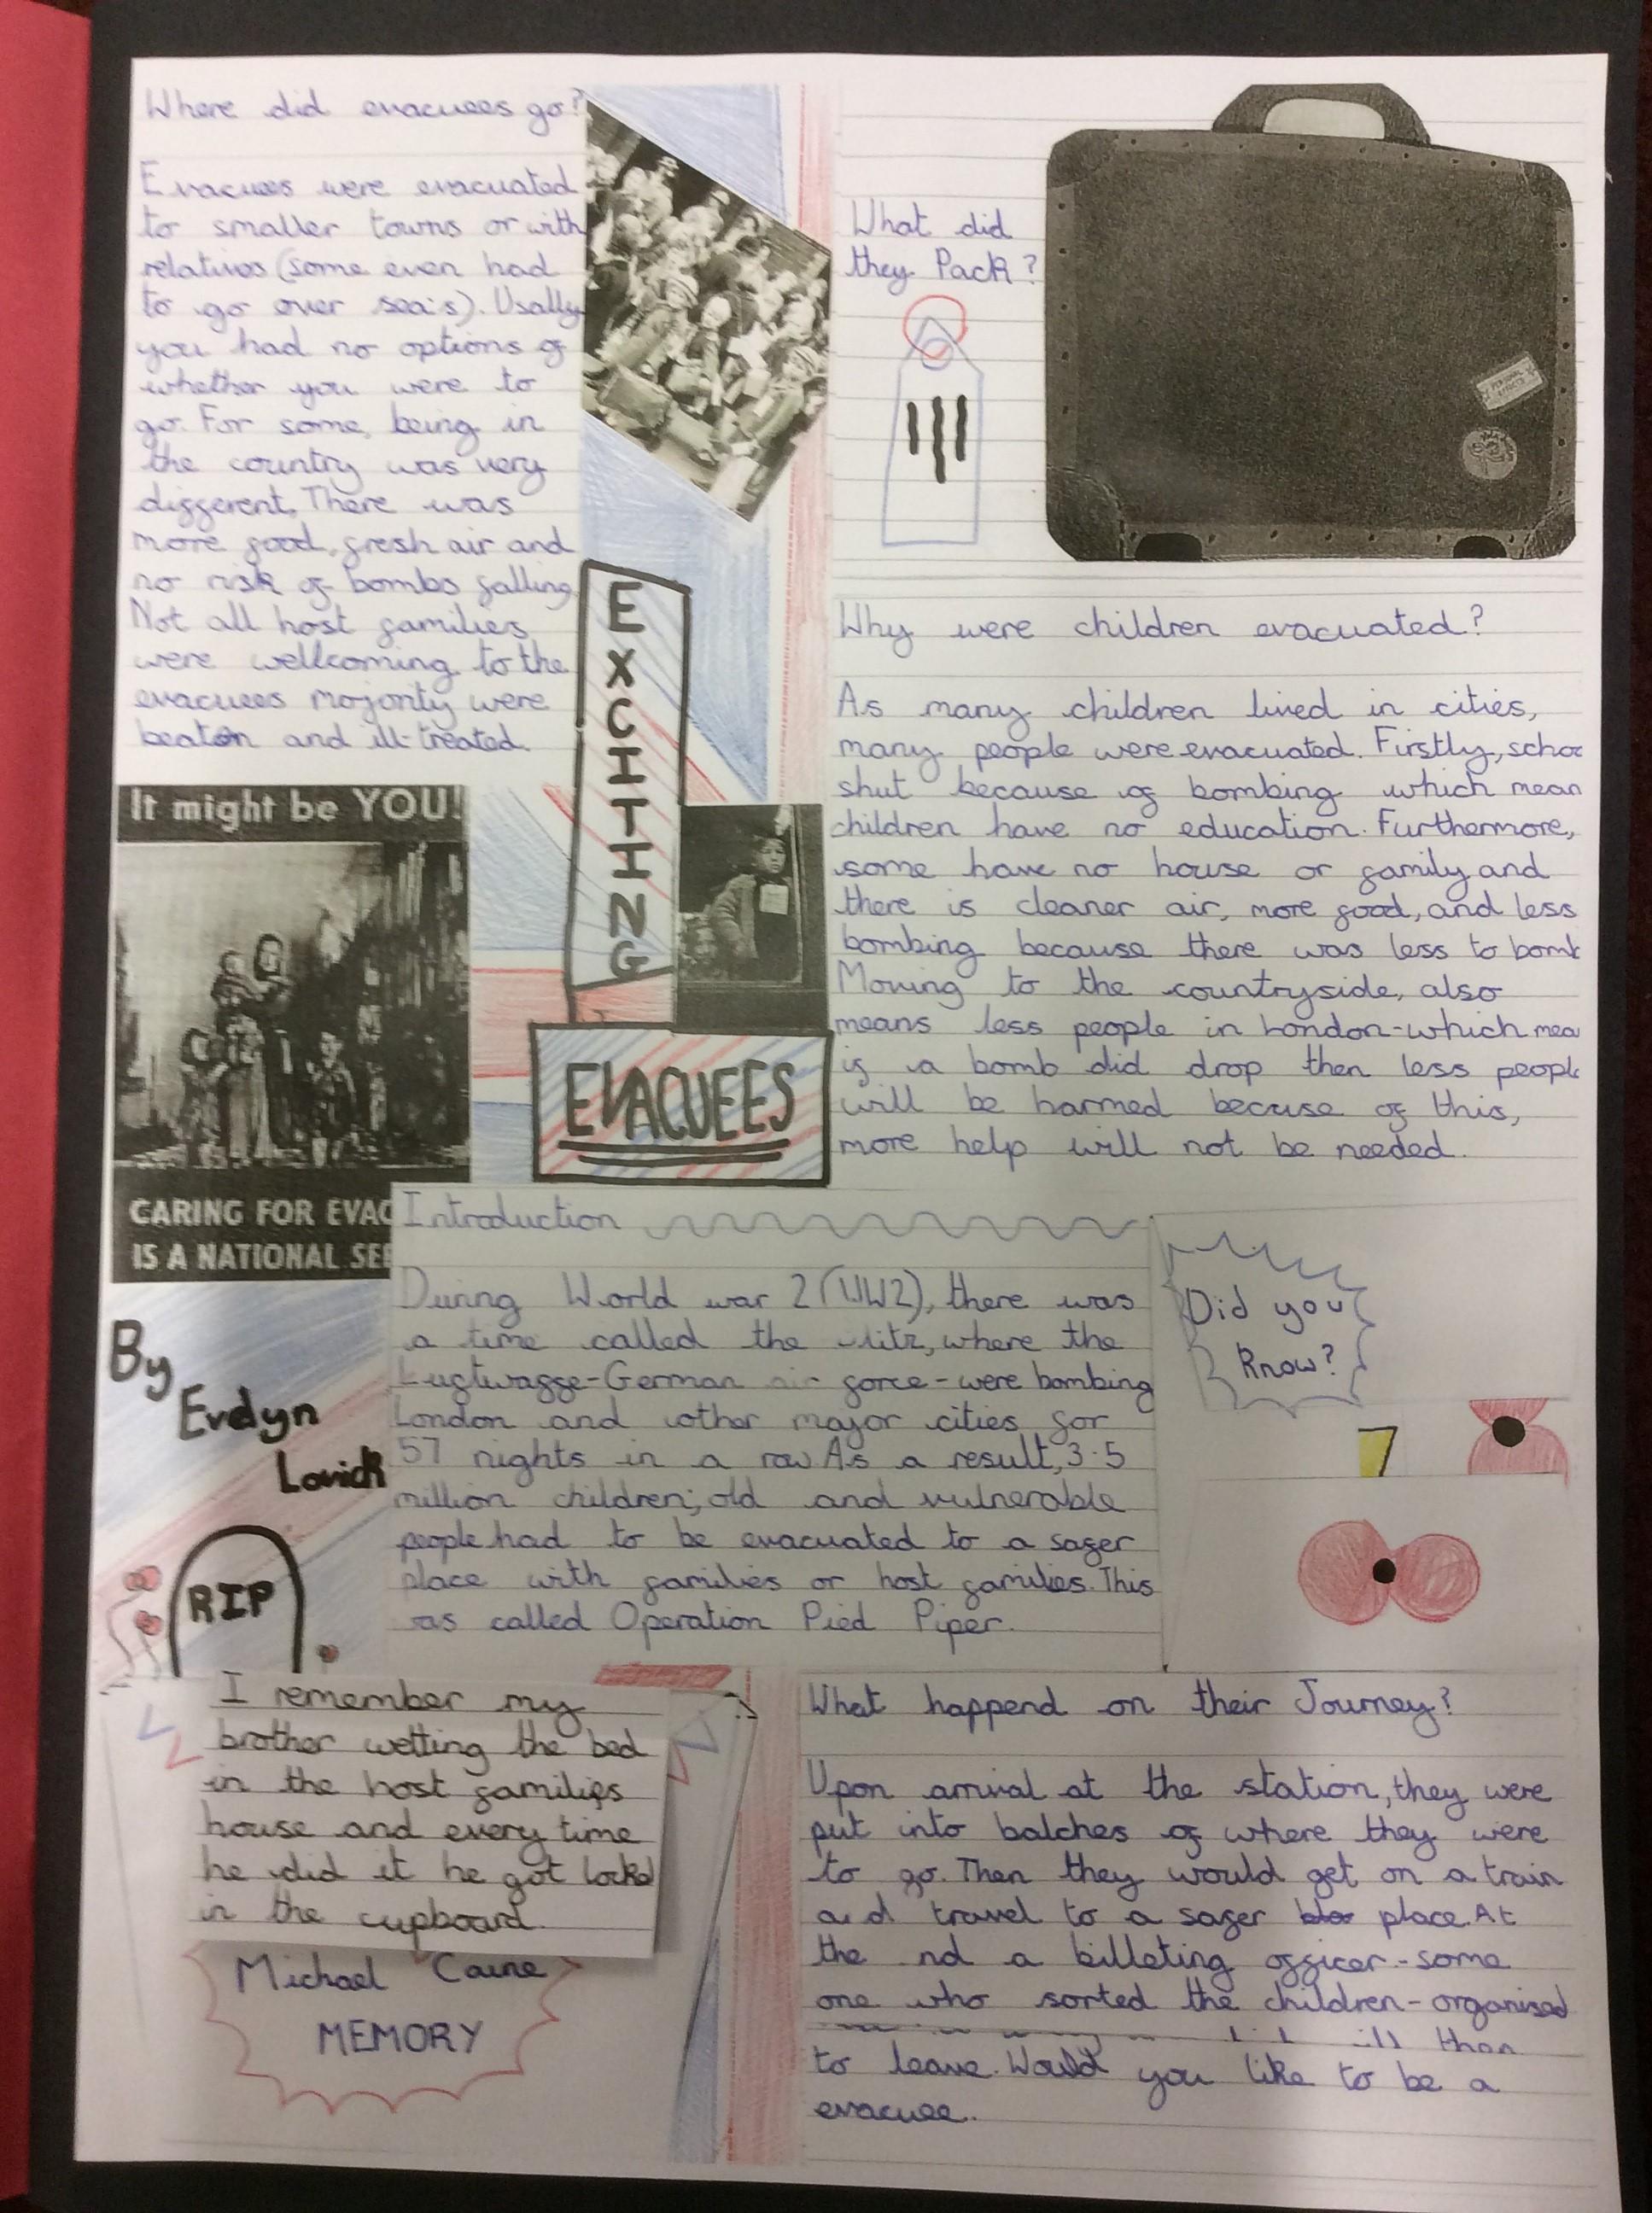 Where did evacuees go?
Evacuees were evacuated
to smaller towns or with
relatives (some even had
to go over sea's). Usally
you had no options of
whether you were to
go. For some, being in
the country was very
different. There was
more food, fresh air and
no risk of bombs falling.
Not all host families
were wellcoming to the
evacuees majority were
beaton and ill-treated.
What did
they Pack?
Why were children evacuated?
As many children lived in cities,
many people were evacuated. Firstly, schoo
shut because of bombing which mean
children have no education. Furthermore,
some have no house or family and
there is cleaner air, more food, and less
bombing because there was less to bomb
Moving to the countryside, also
means less people in London-which mea
if a bomb did drop then less people
will be harmed becuse of this,
more help will not be needed.
EXCITING
EVACUEES
It might be YOU!
CARING FOR EVAC
IS A NATIONAL SER
By
Evelyn
Lovick
RIP
Introduction
During World war 2 (WW2), there was
a time called the litz, where the
Luftwaffe-German air force-were bombing
London and other major cities for
57 nights in a row. As a result, 3.5
million children; old and vulnerable
people had to be evacuated to a safer
place with families or host families. This
as called Operation Pied Piper.
Did you
Know?
I remember my
brother wetting the bed
in the host families
house and every time
he did it he got locked
in the cupboard.
Michael Caine
MEMORY
What happend on their Journey?
Upon arrival at the station, they were
put into batches of where they were
to go. Then they would get on a train
and travel to a safer place. At
the nd a billeting officer-some
one who sorted the children-organised
to leave. Would you like to be a
evacuee.